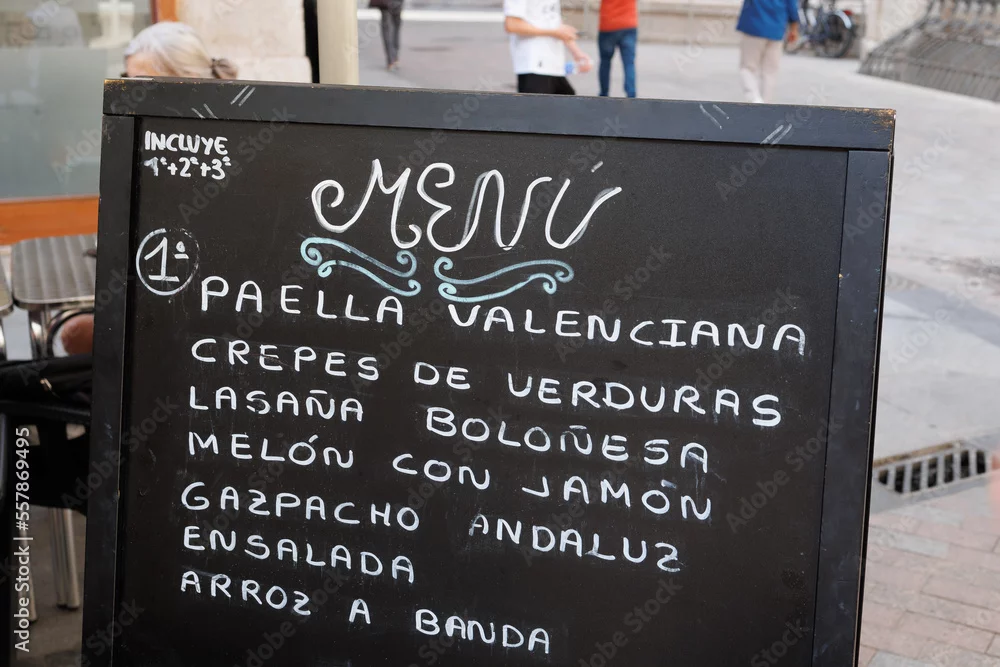 INCLUYE
1º+2º+3º
MENÚ
1º
PAELLA VALENCIANA
CREPES DE VERDURAS
LASAÑA BOLOÑESA
MELÓN CON JAMÓN
GAZPACHO ANDALUZ
ENSALADA
ARROZ A BANDA
Adobe Stock | #557869495